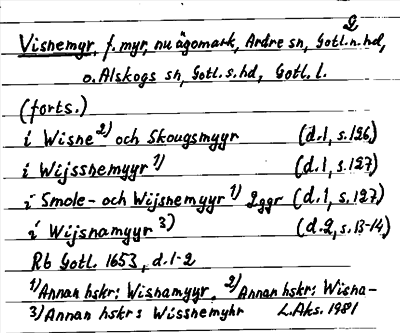 2
Visnemyr, f. myr, nu ägomark, Ardre sn, Gotl. n. hd,
o. Alskogs sn, Gotl. s. hd, Gotl. l.
(forts.)
i Wisne 2) och Skougsmyyr (d.1, s.126)
i Wijssnemyyr 1) (d.1, s.127)
i Smole- och Wijsnemyyr 1) 2ggr (d.1, s.127)
i Wijsnamyyr 3) (d.2, s.13-14)
Rb Gotl. 1653, d.1-2
1) Annan hskr: Wisnamyyr. 2) Annan hskr: Wisna-
3) Annan hskr: Wissnemyhr L.Aks. 1981